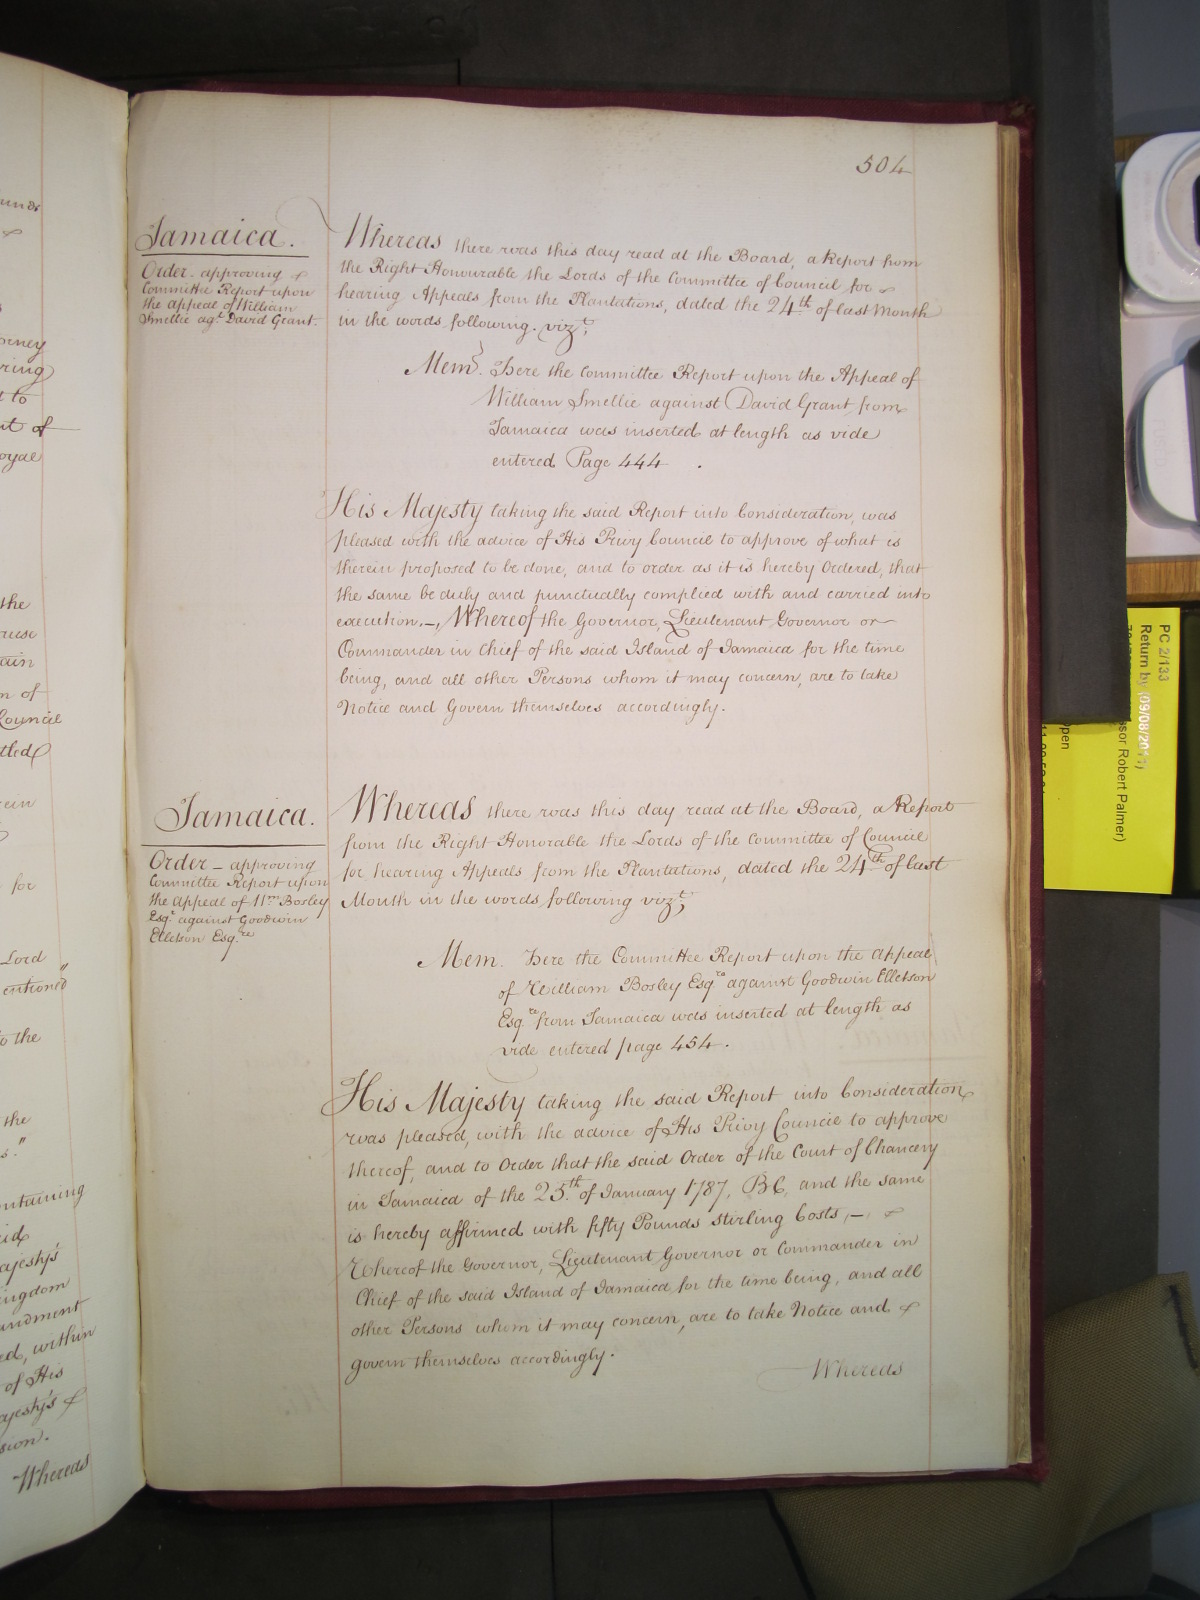 504
Jamaica.
Order approving
Committe Report upon
the appeal of William
Smellie agt. David Grant.
Whereas there was this day read at the Board, a Report from
the Right Honourable the Lords of the Committee of Council for
hearing Appeals from the Plantations, dated the 24th of last Month
in the words following. vizt.
Mem. Here the Committee Report upon the Appeal of
William Smellie against David Grant from
Jamaica was inserted at length as vide
entered Page 444.
His Majesty taking the said Report into Consideration, was
pleased with the advice of His Privy Council to approve of what is
therein proposed to be done, and to order as it is hereby Ordered, that
the same be duly and punctually complied with and carried into
execution.—, Whereof the Governor, Lieutenant Governor or
Commander in Chief of the said Island of Jamaica for the time
being, and all other Persons whom it may concern, are to take
Notice and Govern themselves accordingly.
Jamaica.
Order — approving
Committee Report upon
the appeal of Wm. Bosley
Esqr. against Goodwin
Elletson Esq.re
Whereas there was this day read at the Board, a Report
from the Right Honorable the Lords of the Committee of Council
for hearing Appeals from the Plantations, dated the 24th of last
Month in the words following vizt;
Mem. Here the Committee Report upon the appeal
of William Bosley Esqre against Goodwin Elletson
Esq.re from Jamaica was inserted at length as
vide entered page 454.
His Majesty taking the said Report into Consideration
was pleased, with the advice of His Privy Council to approve
thereof, and to Order that the said Order of the Court of Chancery
in Jamaica of the 25.th of January 1787, BE, and the same
is hereby affirmed with fifty Pounds sterling Costs,—
Whereof the Governor, Lieutenant Governor or Commander in
Chief of the said Island of Jamaica for the time being, and all
other Persons whom it may concern, are to take Notice and
govern themselves accordingly.
Whereas
orney
ring
to
of
oyal
the
ain
n of
Council
tled
rein
for
Lord
entioned
to the
the
ontaining
ajesty's
ingdom
endment
ed, within
of His
ajesty's
sion.
Whereas
PC 2/133
Return by (09/08/2011)
ssor Robert Palmer)
pen